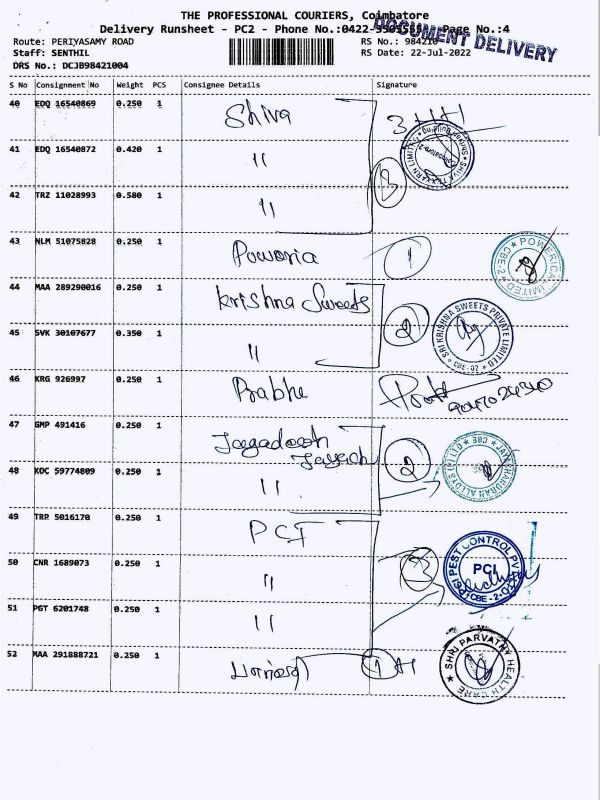 THE PROFESSIONAL COURIERS, Coimbatore
Delivery Runsheet - PC2 - Phone No.:0422- Page No.:4
DOCUMENT DELIVERY
Route: PERIYASAMY ROAD RS No.: 984210
Staff: SENTHIL RS Date: 22-Jul-2022
DRS No.: DCJB98421004
S No Consignment No Weight PCS Consignee Details Signature
40 EDQ 16540869 0.250 1 Shiva 3
41 EDQ 16540872 0.420 1 11
42 TRZ 11028993 0.580 1 11 3
43 NLM 51075828 0.250 1 Poweria 1
POWERICA LIMITED ★ CBE-2 ★
44 MAA 289290016 0.250 1 Krishna Sweets 2
SRI KRISHNA SWEETS PRIVATE LIMITED * CBE-02 *
45 SVK 30107677 0.350 1 11
46 KRG 926997 0.250 1 Prabhe
47 GMP 491416 0.250 1 Jagadeesh
Jayach 2
48 KOC 59774809 0.250 1 11
49 TRP 5016170 0.250 1 PCI
50 CNR 1689073 0.250 1 11 3
PEST CONTROL
PCI
CBE-2
51 PGT 6201748 0.250 1 11
52 MAA 291888721 0.250 1 1
★ SHRI PARVATHY HEALTH CARE ★